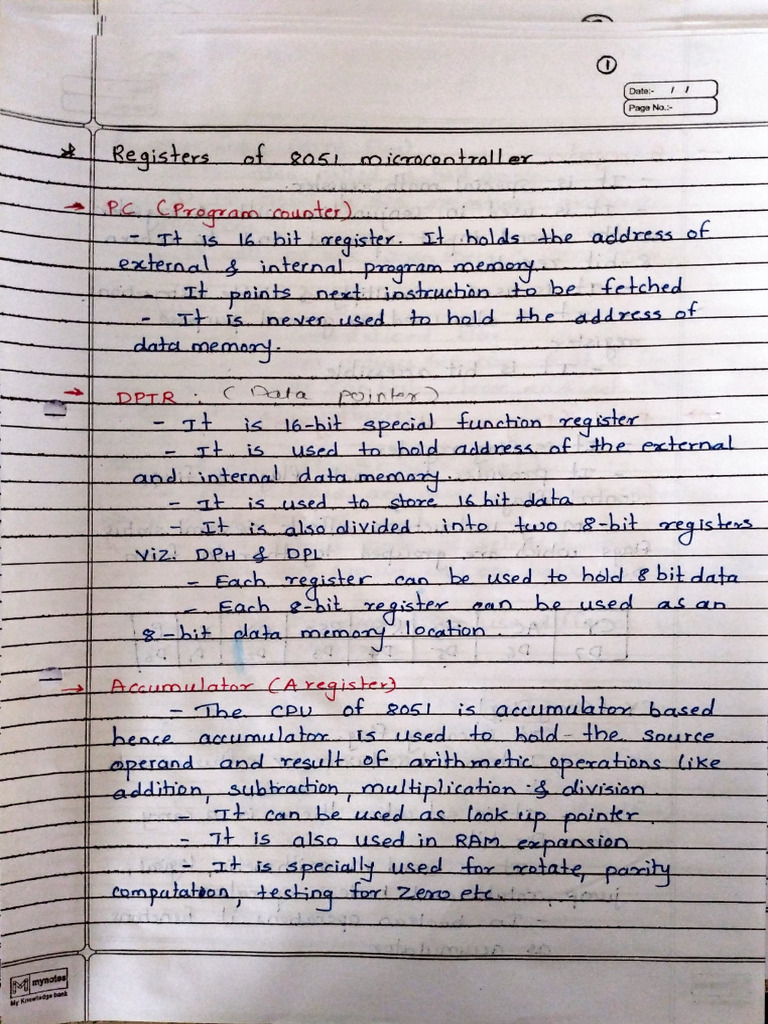 1
Date:- / /
Page No.:-
* Registers of 8051 microcontroller
→ P.C. (Program counter)
- It is 16 bit register. It holds the address of
external & internal program memory.
- It points next instruction to be fetched
- It is never used to hold the address of
data memory.
→ DPTR : (Data pointer)
- It is 16-bit special function register
- It is used to hold address of the external
and internal data memory.
- It is used to store 16 bit data
- It is also divided into two 8-bit registers
Viz. DPH & DPL
- Each register can be used to hold 8 bit data
- Each 8-bit register can be used as an
8-bit data memory location.
→ Accumulator (A register)
- The CPU of 8051 is accumulator based
hence accumulator is used to hold the source
operand and result of arithmetic operations like
addition, subtraction, multiplication & division
- It can be used as look up pointer
- It is also used in RAM expansion
- It is specially used for rotate, parity
computation, testing for Zero etc.
mynotes
My Knowledge bank